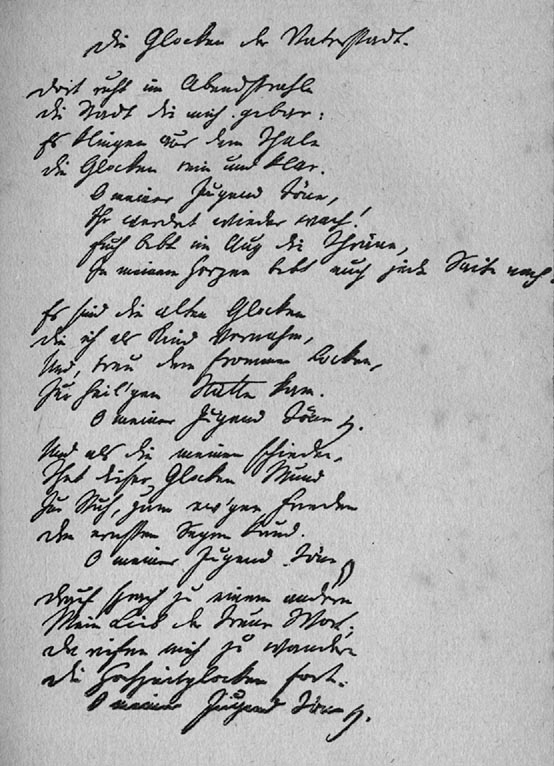 Die Glocken der Vaterstadt.
Dort ruht im Abendstrahle
die Stadt die mich gebar:
Es klingen aus dem Thale
die Glocken rein und klar.
O meiner Jugend Töne,
Ihr werdet wieder wach!
Euch bebt im Aug die Thräne,
In meinem Herzen bebt euch jede Saite nach.
Es sind die alten Glocken
die ich als Kind vernahm,
Und, treu dem frommen Locken,
Zur heil'gen Stätte kam.
O meiner Jugend Töne
Und als die meinen schieden,
That dieser Glocken Mund
Zur Ruh, zum ew'gen Frieden
Den ernsten Segen kund.
O meiner Jugend Töne
Drauf sprach zu einem andern
Mein Lieb der Treue Wort;
Da riefen mich zu wandern
Die Hochzeitglocken fort.
O meiner Jugend Töne